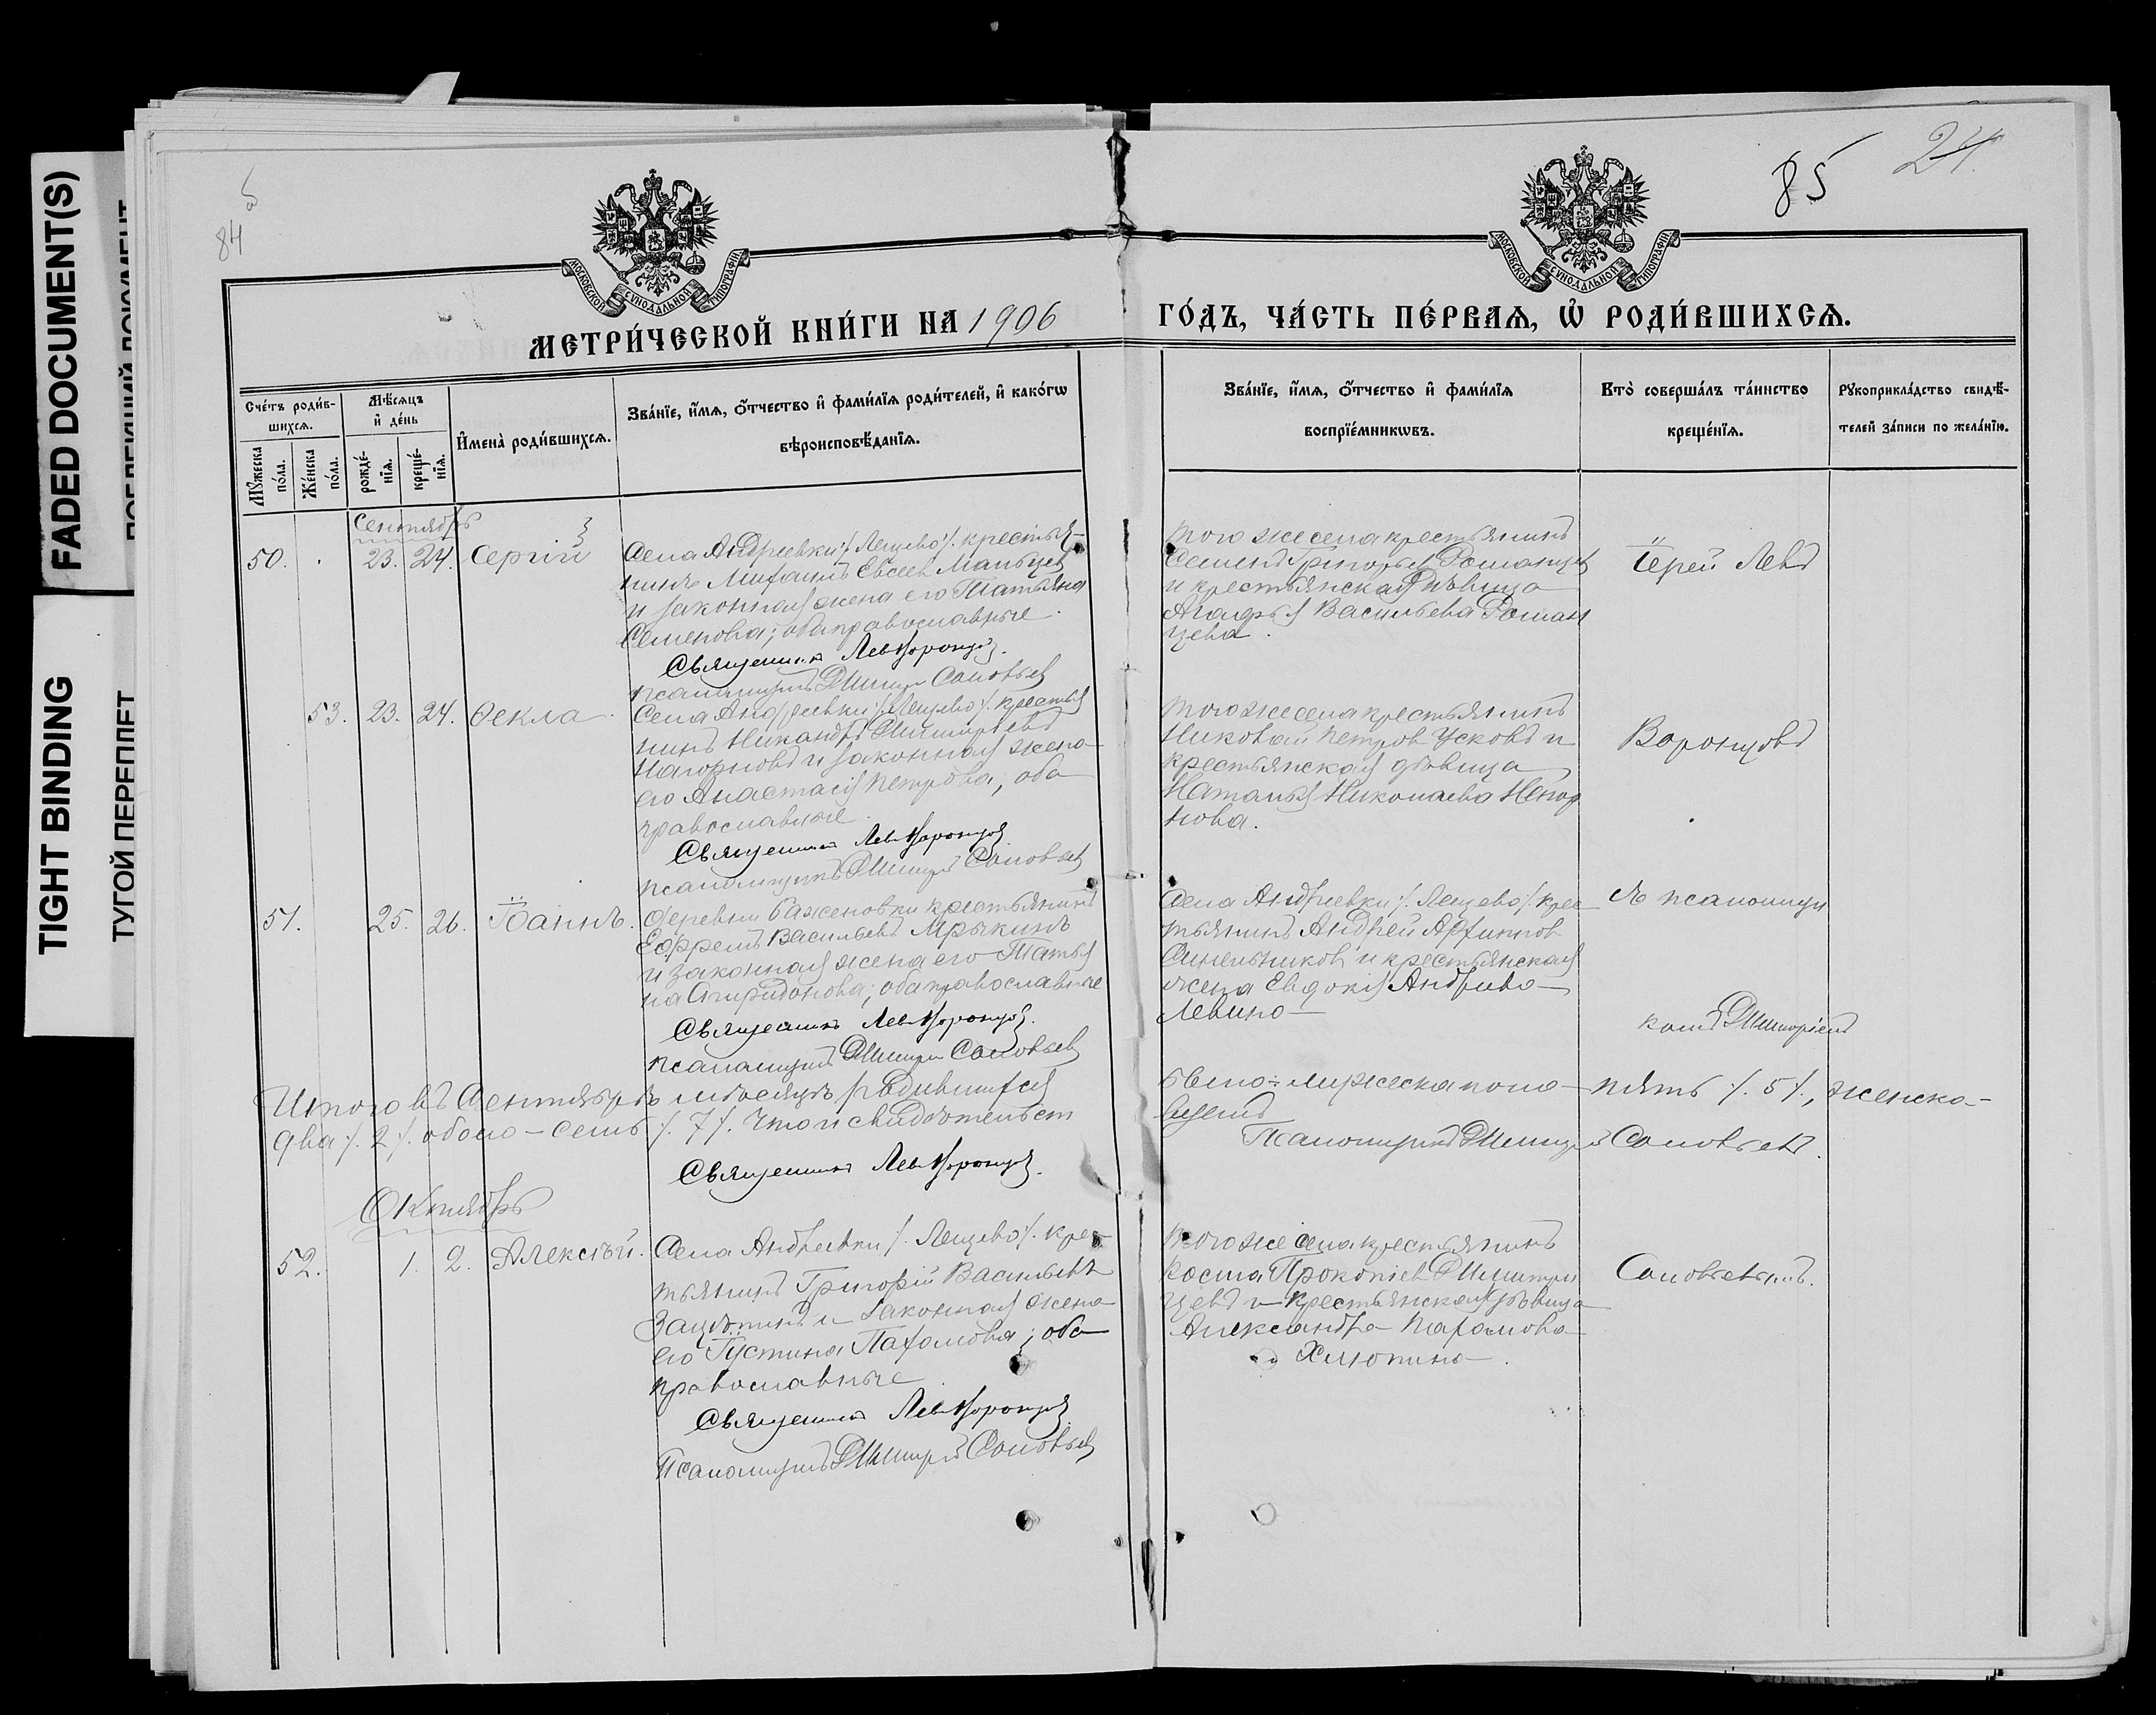 FADED DOCUMENT(S)
TIGHT BINDING
ТУГОЙ ПЕРЕПЛЕТ
84
85
24.
МОСКОВСКОЙ СѴНОДАЛЬНОЙ ТИПОГРАФІИ
МОСКОВСКОЙ СѴНОДАЛЬНОЙ ТИПОГРАФІИ
МЕТРИ́ЧЕСКОЙ КНИ́ГИ НА 1906
ГО́ДЪ, ЧА́СТЬ ПЕ́РВАЯ, Ѽ РОДИ́ВШИХСѦ.
Сче́тъ роди́в-
шихсѧ.
Мꙋ́жеска по́ла.
Же́нска по́ла.
Мѣ́сяцъ и҆ де́нь
рожде́-нїѧ.
креще́-нїѧ.
И҆мена̀ роди́вшихсѧ.
Зва́нїе, и҆́мѧ, ѻ҆́тчество и҆ фами́лїѧ роди́телей, и҆ како́гѡ
вѣроисповѣ́данїѧ.
Зва́нїе, и҆́мѧ, ѻ҆́тчество и҆ фами́лїѧ
воспрїе́мникѡвъ.
Кто̀ соверша́лъ та́инство
креще́нїѧ.
Рꙋкоприкла́дство свидѣ́-
телей за́писи по жела́нїю.
Сентябрь
50. 23. 24. Сергій
Села Андреевки /. Лещево /. крестья-
нинъ Михаилъ Евсеев Мальцев
и законная жена его Татьяна
Семенова; оба православные.
Священникъ Лев Воронцов.
псаломщикъ Димитрій Соловьев
того же села крестьянинъ
Семенъ Григорьев Романцев
и крестьянская дѣвица
Агафья Васильева Роман
цева.
Іерей Левъ
53. 23. 24. Ѳекла
Села Андреевки /. Лещево /. крестья
нинъ Никандръ Димитріевъ
Нагорновъ и законная жена
его Анастасія Петрова, оба
православные.
Священникъ Лев Воронцов.
псаломщикъ Димитрій Соловьев
того же села крестьянинъ
Николай Петров Усковъ и
крестьянская дѣвица
Наталья Николаева
нова.
Воронцовъ
51. 25. 26. Іоаннъ.
Деревни Баженовки крестьянинъ
Ефремъ Васильевъ Мрыкинъ
и законная жена его Татья
на Спиридонова; оба православные
Священникъ Лев Воронцов.
псаломщикъ Димитрій Соловьев
Села Андреевки /. Лещево /. крес
тьянинъ Андрей
Синельников и крестьянская
жена Евдокія Андреева
Левина
съ псаломщи
комъ Димитріемъ
Итого въ Сентябрѣ мѣсяцѣ родившихся
было: мужеска пола пять /. 5 /., женска
два /. 2 /. обоего - семь /. 7 /. Что и свидѣтельст
вуемъ
Псаломщикъ Димитрій Соловьев.
Священникъ Лев Воронцов.
Октябрь
52. 1. 2. Алексѣй.
Села Андреевки /. Лещево /. крес
тьянинъ Григорій Васильевъ
Зацѣпинъ и законная жена
его Іустина Пахомова; оба
православные.
Священникъ Лев Воронцов.
Псаломщикъ Димитрій Соловьев
того же села крестьянинъ
Косма Прокопіев Димитри
цевъ и крестьянская дѣвица
Александра Пахомова
Хлюпина.
Соловьевымъ.